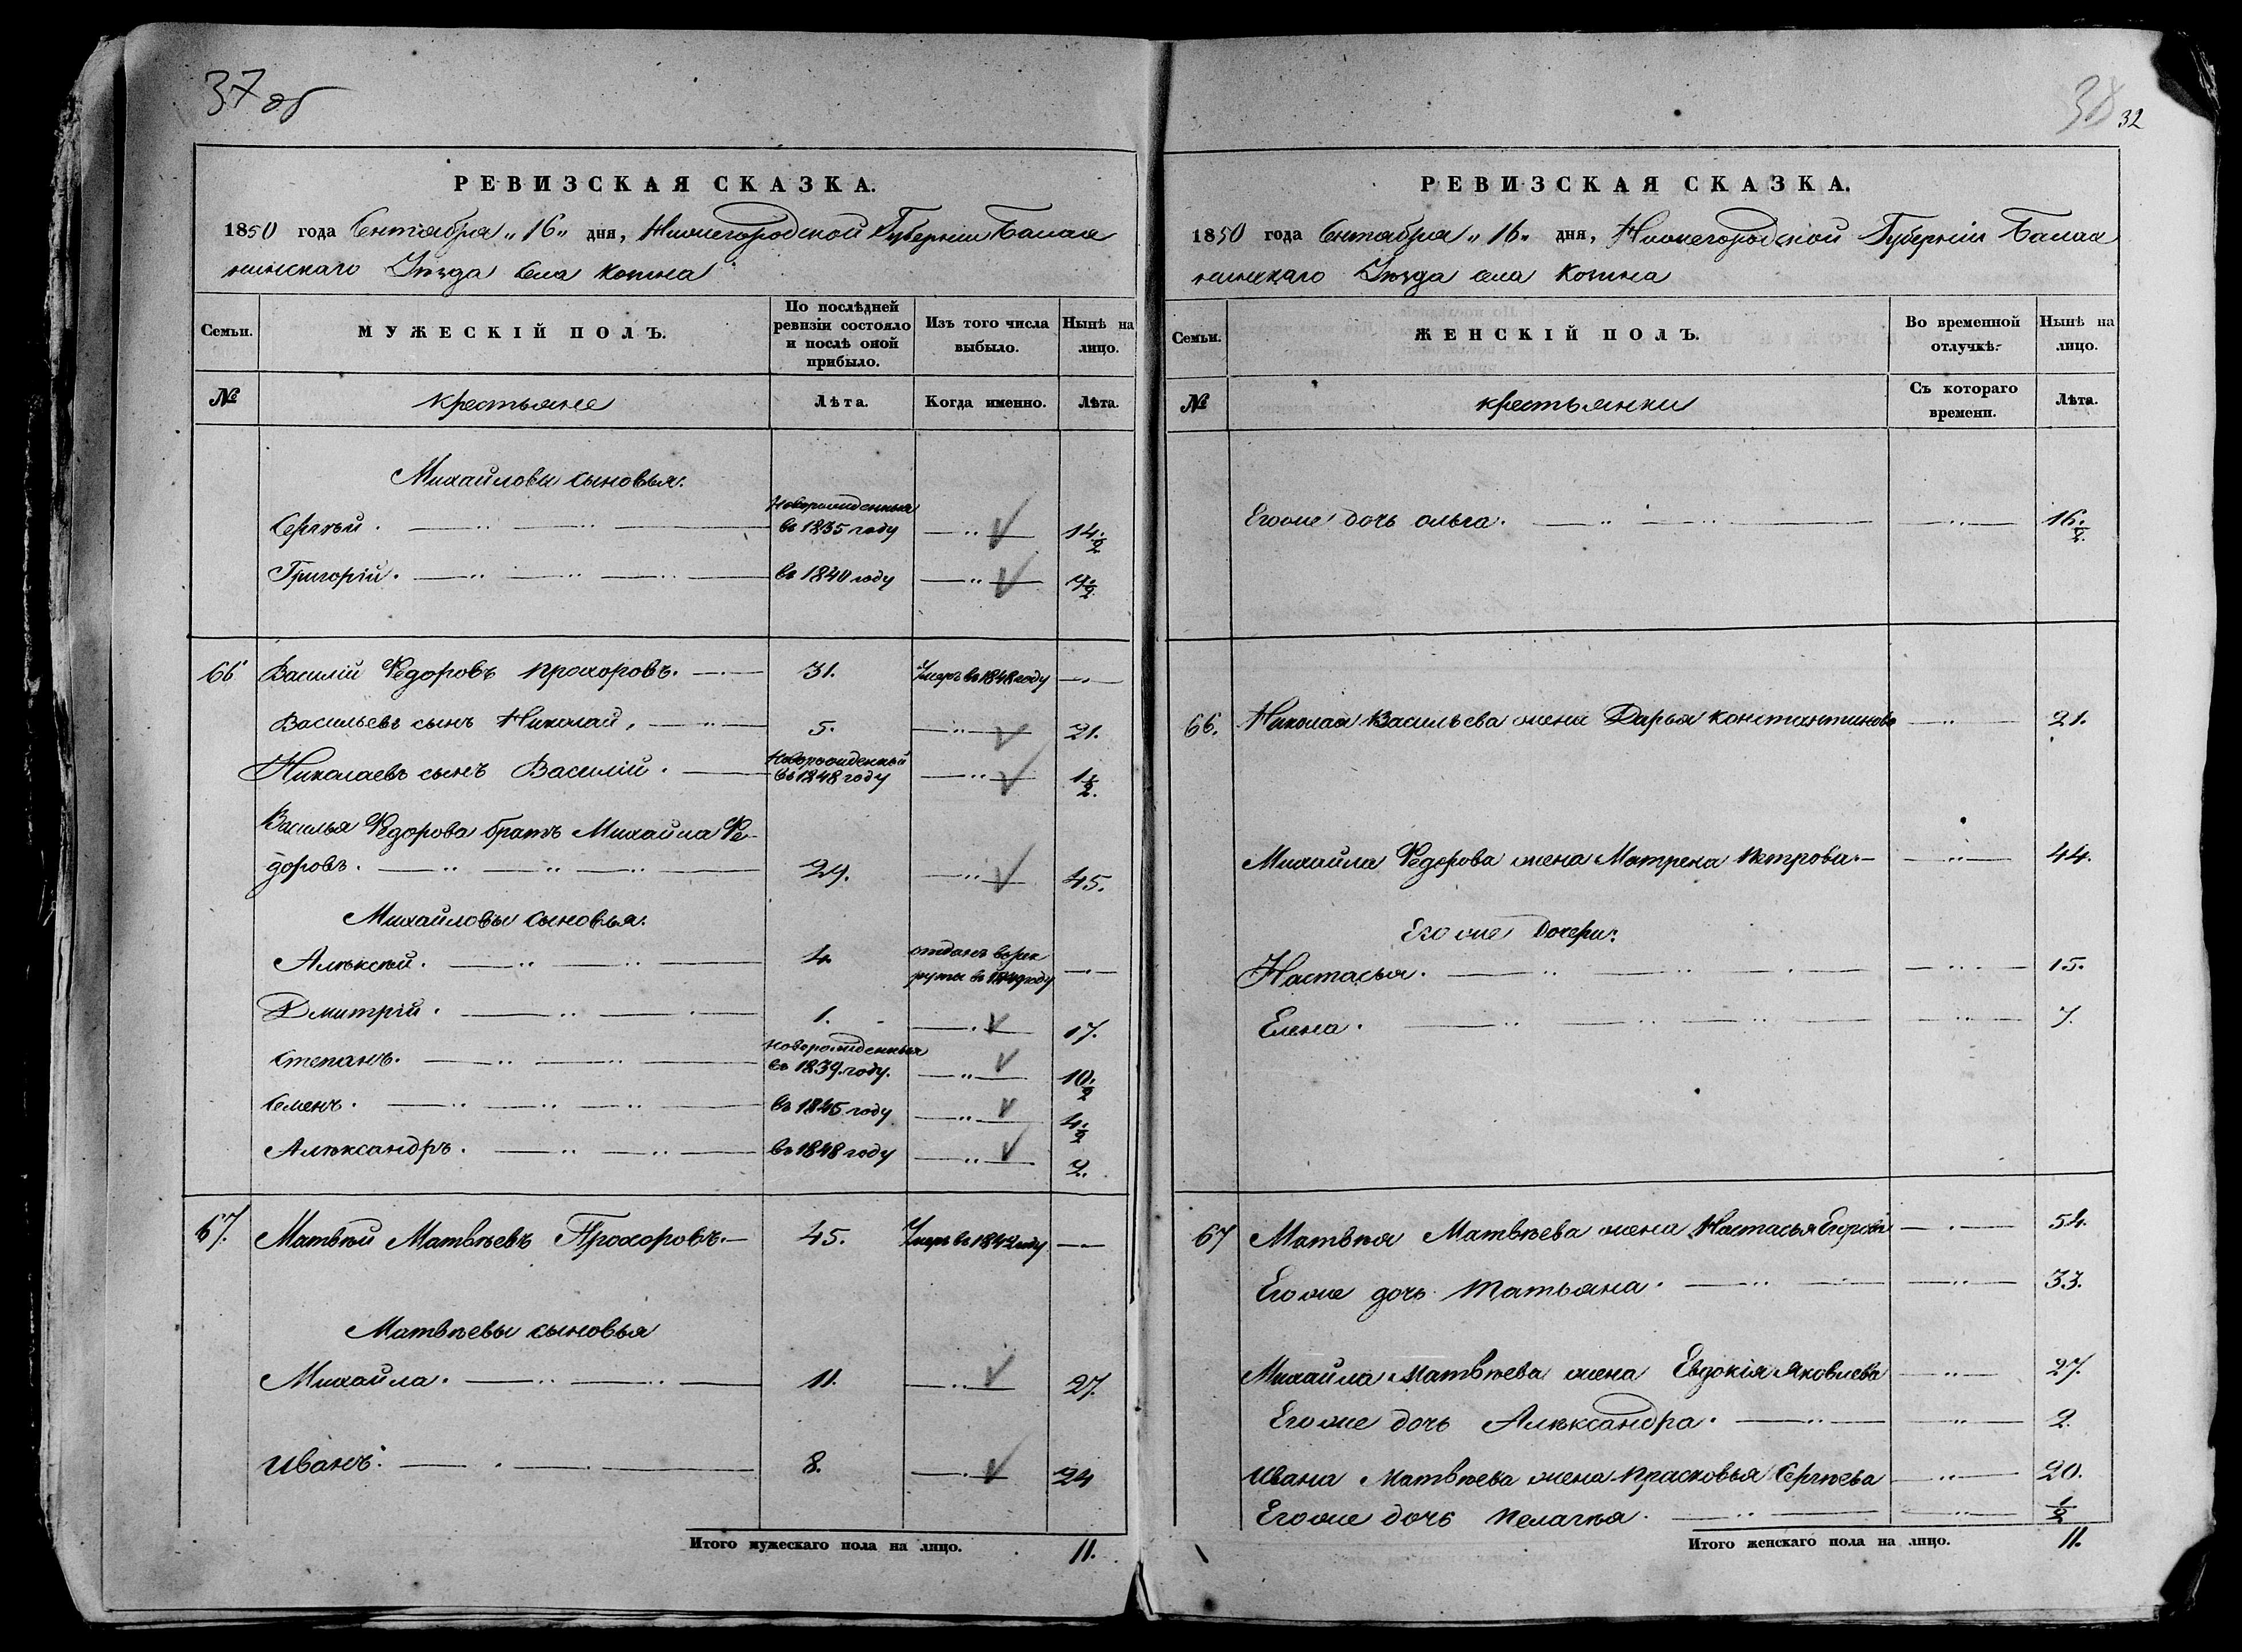 37 об
РЕВИЗСКАЯ СКАЗКА.
1850 года Сентября „16„ дня, Нижегородской Губерніи Балах
нинскаго Уѣзда Села Копина
Семьи.
МУЖЕСКІЙ ПОЛЪ.
По послѣдней
ревизіи состояло
и послѣ оной
прибыло.
Изъ того числа
выбыло.
Нынѣ на
лицо.
№
крестьяне
Лѣта.
Когда именно.
Лѣта.
Михайловы сыновья.
Новорожденныя
Сергѣй. въ 1835 году 14 1/2
Григорій. въ 1840 году 9 1/2
66 Василій Ѳедоровъ Прохоровъ. 31. Умеръ въ 1848 году
Васильевъ сынъ Николай, 5. 21.
Новорожденный
Николаевъ сынъ Василій. въ 1848 году 1 1/2.
Василья Ѳедорова братъ Михайла Ѳе-
доровъ. 29. 45.
Михайловы сыновья.
Алѣксѣй. 4. отданъ въ рек
руты въ 1849 году
Дмитрій. 1. 17.
новорожденныя
Степанъ. въ 1839. году. 10 1/2
Семенъ. въ 1845 году 4 1/2
Алѣксандръ. въ 1848 году 2.
67. Матвѣй Матвѣевъ Прохоровъ. 45. Умеръ въ 1842 году
Матвѣевы сыновья
Михайла. 11. 27.
Иванъ. 8. 24
Итого мужескаго пола на лицо. 11.
38 32
РЕВИЗСКАЯ СКАЗКА.
1850 года Сентября „16„ дня, Нижегородской Губерніи Балах
нинскаго Уѣзда села Копина
Семьи.
ЖЕНСКІЙ ПОЛЪ.
Во временной
отлучкѣ.
Нынѣ на
лицо.
№
крестьянки
Съ котораго
времени.
Лѣта.
Егоже дочь Ольга. 16 1/2.
66. Николая Васильева жена Дарья Константинова 21.
Михайла Ѳедорова жена Матрена Петрова. 44.
Его же Дочери:
Настасья. 15.
Елена. 7.
67 Матвѣя Матвѣева жена Настасья Егорова 54.
Егоже дочь Татьяна. 33.
Михайла Матвѣева жена Евдокія Яковлева 27.
Егоже дочь Алѣксандра. 2.
Ивана Матвѣева жена Прасковья Сергѣева 20.
Егоже дочь Пелагѣя. 1/2
Итого женскаго пола на лицо. 11.